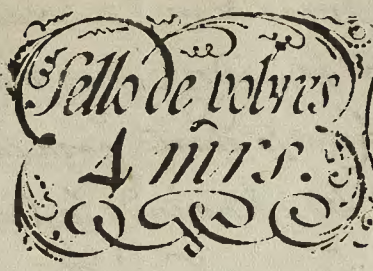 Sello de pobres
4 m̃rs.